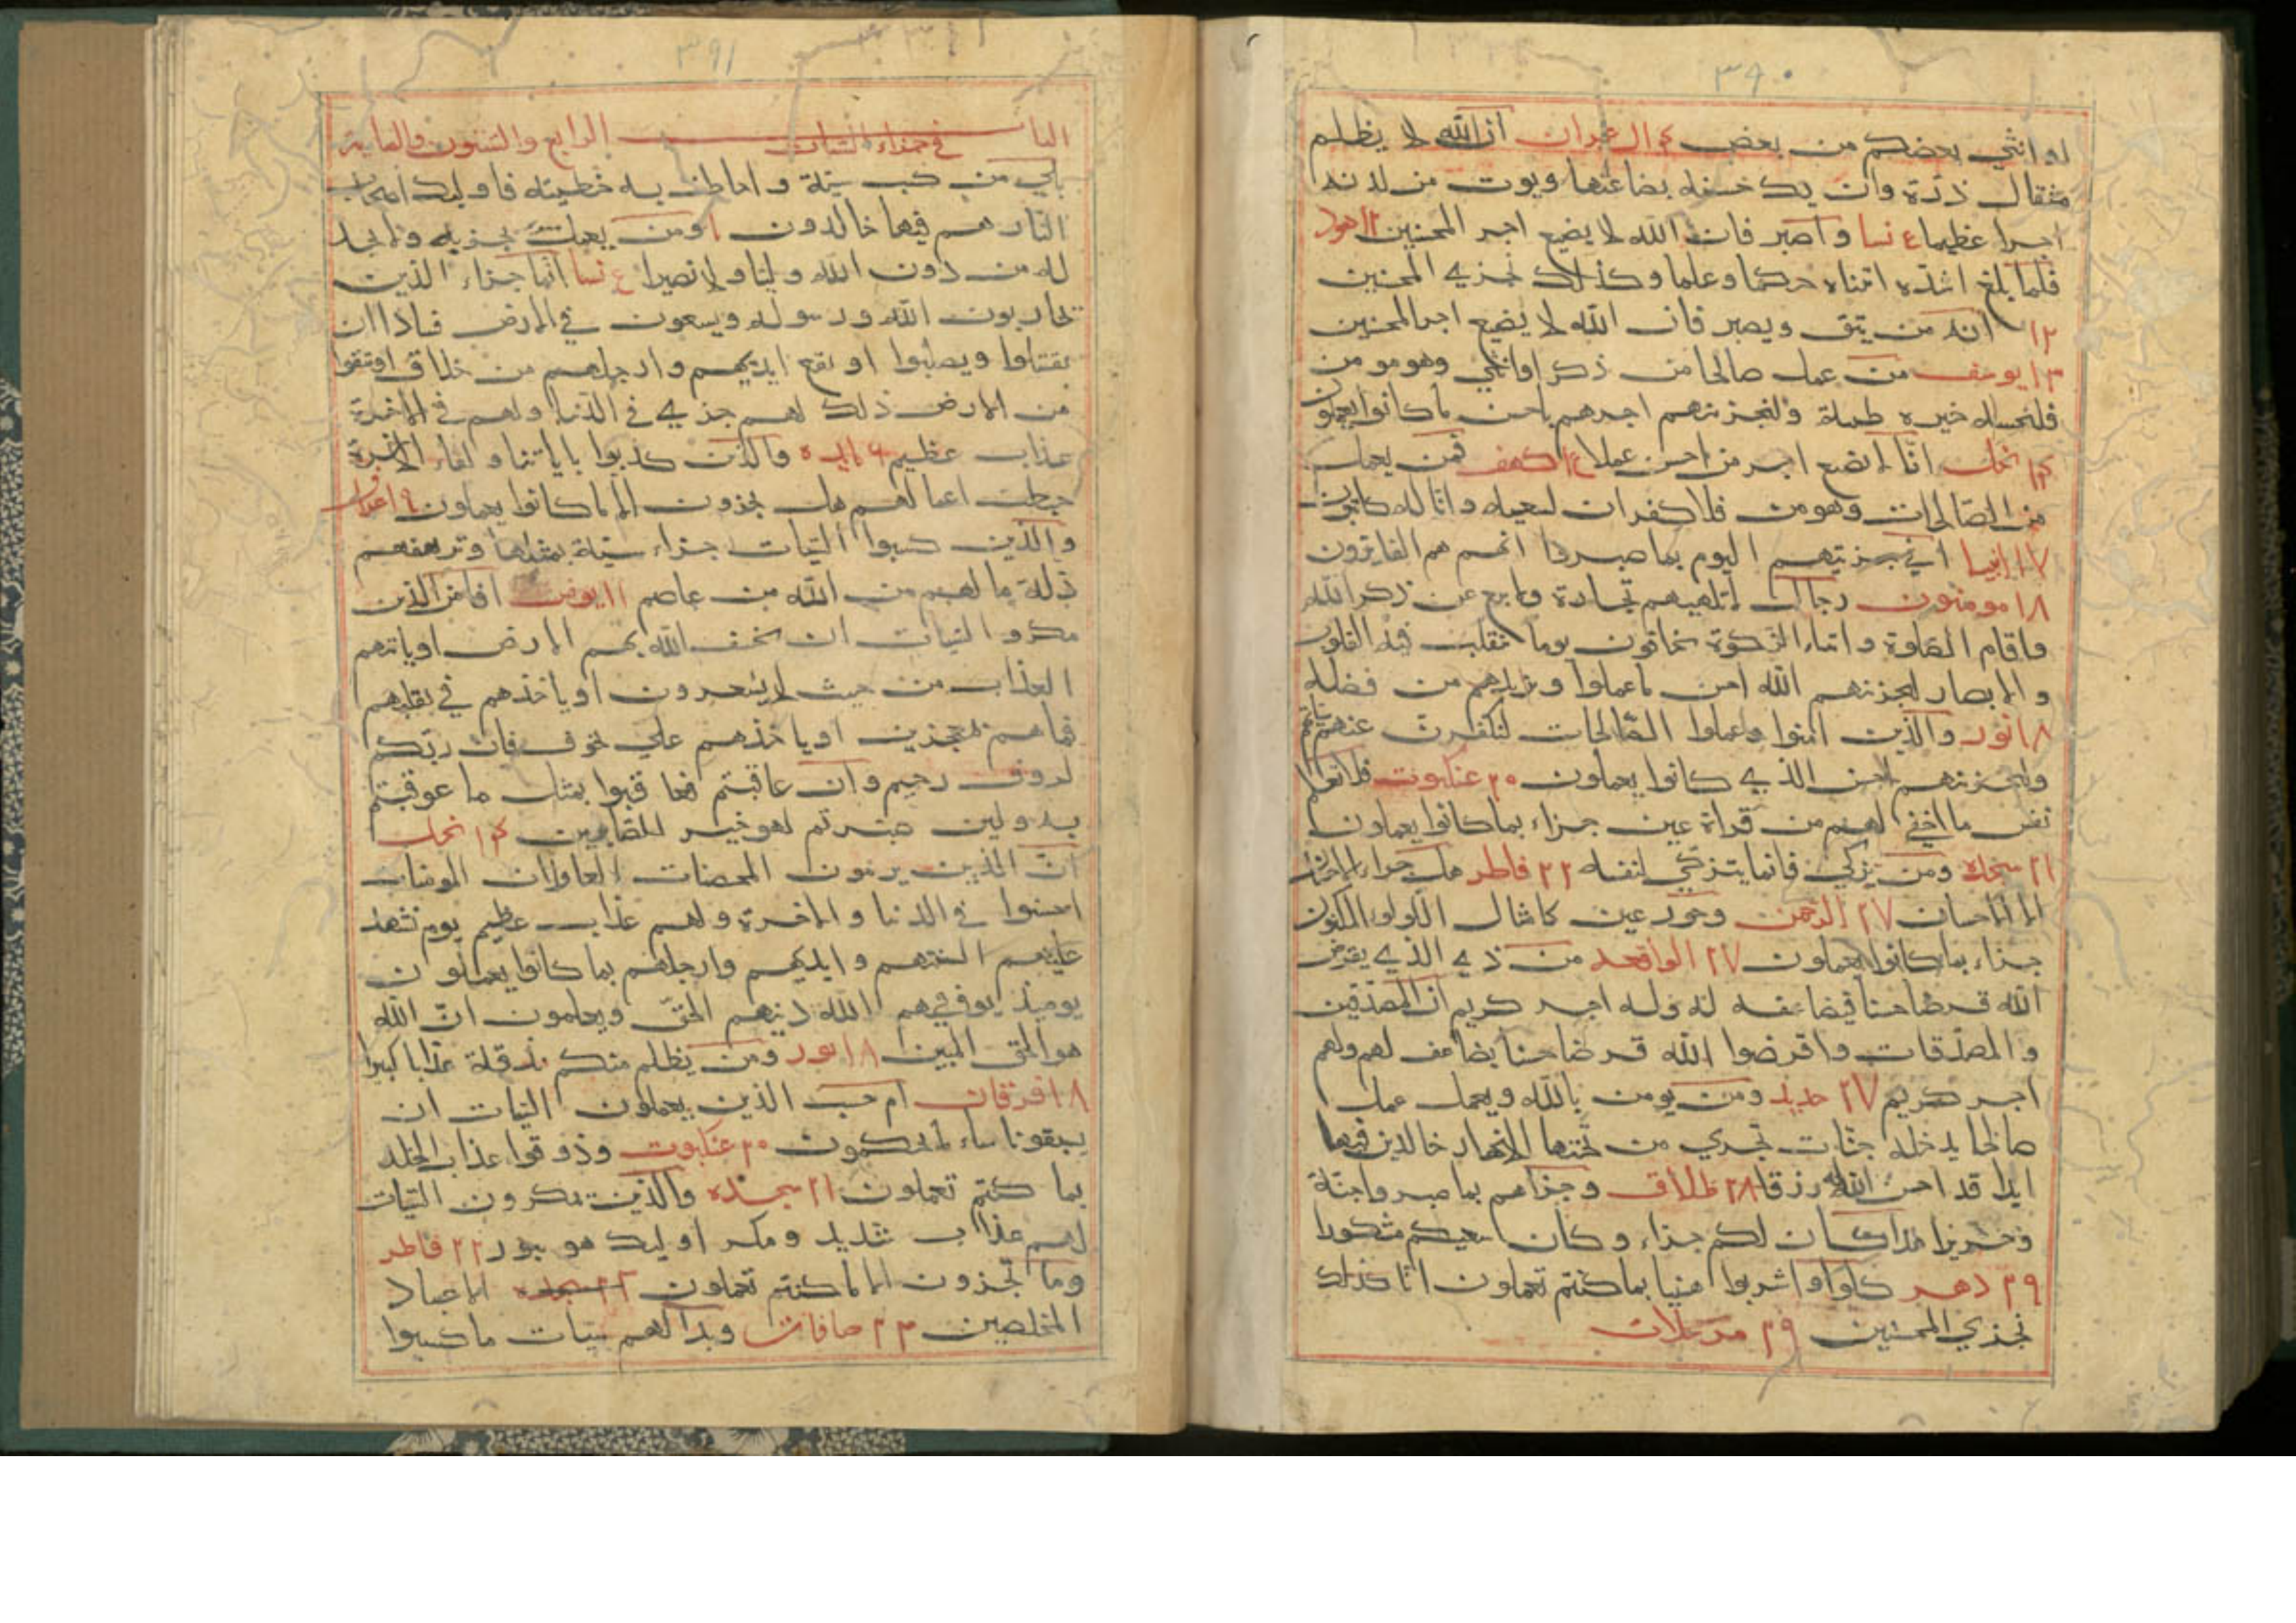 ٣٩٠
او انثي بعضكم من بعض ٤ ال عمران ان الله لا يظلم
مثقال ذرة وان يك حسنه يضاعفها ويوت من لدنه
اجرا عظيما ٤ نسا واصبر فان الله لا يضيع اجر المحسنين ١٢ هود
فلما بلغ اشده اتيناه حكما وعلما وكذلك نجزي المحسنين
١٢ انه من يتق ويصبر فان الله لا يضيع اجر المحسنين
١٣ يوسف من عمل صالحا من ذكر او انثي وهو مومن
فلنحيينه حيوه طيبة ولنجزينهم اجرهم باحسن ما كانوا يعملون
١٤ نحل انا لا نضيع اجر من احسن عملا ١٥ كهف فمن يعمل
من الصالحات وهو مومن فلا كفران لسعيه وانا له كاتبون
١٧ انبيا اني جزيتهم اليوم بما صبروا انهم هم الفايزون
١٨ مومنون رجال لا تلهيهم تجارة ولا بيع عن ذكر الله
واقام الصلوة وايتاء الزكوة يخافون يوما تتقلب فيه القلوب
والابصار ليجزيهم الله احسن ما عملوا ويزيدهم من فضله
١٨ نور والذين امنوا وعملوا الصالحات لنكفرن عنهم سياتهم
ولنجزينهم احسن الذي كانوا يعملون ٢٠ عنكبوت فلا تعلم
نفس ما اخفي لهم من قراة عين جزاء بما كانوا يعملون
٢١ سجده ومن تزكي فانما يتزكي لنفسه ٢٢ فاطر هل جزاء الاحسان
الا الاحسان ٢٧ الرحمن وحور عين كامثال اللولو المكنون
جزاء بما كانوا يعملون ٢٧ الواقعه من ذي الذي يقرض
الله قرضا حسنا فيضاعفه له وله اجر كريم ان المصدقين
والمصدقات واقرضوا الله قرضا حسنا يضاعف لهم ولهم
اجر كريم ٢٧ حديد ومن يومن بالله ويعمل عملا
صالحا يدخله جنات تجري من تحتها الانهار خالدين فيها
ابدا قد احسن الله له رزقا ٢٨ طلاق وجزاهم بما صبروا جنة
وحريرا هذا كان لكم جزاء وكان سعيكم مشكورا
٢٩ دهر كلوا واشربوا هنيا بما كنتم تعملون انا كذلك
نجزي المحسنين ٢٩ مرسلات
٣٩١
الباب في جزاء السيات الرابع والستون والماية
بلي من كسب سيئة واحاطت به خطيئته فاوليك اصحاب
النار هم فيها خالدون ١ ومن يعمل سوء يجز به ولا يجد
له من دون الله وليا ولا نصيرا ٤ نسا انما جزاء الذين
يحاربون الله ورسوله ويسعون في الارض فسادا ان
يقتلوا ويصلبوا او تقع ايديهم وارجلهم من خلاف او ينفوا
من الارض ذلك لهم خزي في الدنيا ولهم في الاخرة
عذاب عظيم ٦ مايده والذين كذبوا باياتنا ولقاء الاخرة
حبطت اعمالهم هل يجزون الا ما كانوا يعملون ٩ اعراف
والذين كسبوا السيات جزاء سيئة بمثلها وترهقهم
ذلة ما لهم من الله من عاصم ١١ يونس افامن الذين
مكروا السيات ان يخسف الله بهم الارض او ياتيهم
العذاب من حيث لا يشعرون او ياخذهم في تقلبهم
فما هم بمعجزين او ياخذهم علي تخوف فان ربكم
لروف رحيم وان عاقبتم فعاقبوا بمثل ما عوقبتم
به ولين صبرتم لهو خير للصابرين ١٤ نحل
ان الذين يرمون المحصنات الغافلات المومنات
لعنوا في الدنيا والاخرة ولهم عذاب عظيم يوم تشهد
عليهم السنتهم وايديهم وارجلهم بما كانوا يعملون
يوميذ يوفيهم الله دينهم الحق ويعلمون ان الله
هو الحق المبين ١٨ نور ومن يظلم منكم نذقه عذابا كبيرا
١٨ فرقان ام حسب الذين يعملون السيات ان
يسبقونا ساء ما يحكمون ٢٠ عنكبوت وذوقوا عذاب الخلد
بما كنتم تعملون ٢١ سجده والذين يمكرون السيات
لهم عذاب شديد ومكر اوليك هو يبور ٢٢ فاطر
وما تجزون الا ما كنتم تعملون الا عباد
المخلصين ٢٣ صافات وبدا لهم سيات ما كسبوا